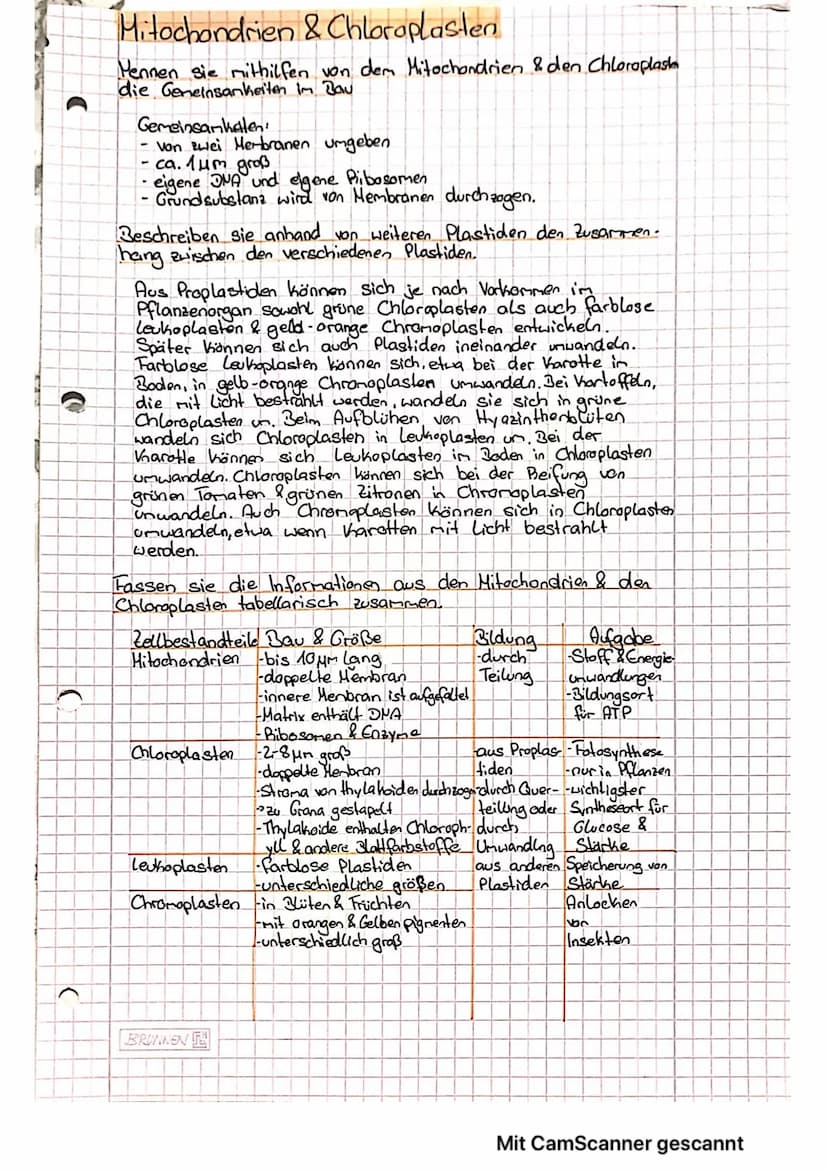 Mitochondrien & Chloroplasten
Nennen sie mithilfen von dem Mitochondrien & den Chloroplasten
die Gemeinsamkeiten im Bau
Gemeinsamkeiten:
- von zwei Membranen umgeben
- ca. 1µm groß
- eigene DNA und eigene Ribosomen
- Grundsubstanz wird von Membranen durchzogen.
Beschreiben sie anhand von weiteren Plastiden den Zusammen-
hang zwischen den verschiedenen Plastiden.
Aus Proplastiden können sich je nach Vorkommen im
Pflanzenorgan sowohl grüne Chloroplasten als auch farblose
Leukoplasten & gelb-orange Chromoplasten entwickeln.
Später können sich auch Plastiden ineinander umwandeln.
Farblose Leukoplasten können sich, etwa bei der Karotte im
Boden, in gelb-orange Chromoplasten umwandeln. Bei Kartoffeln,
die mit Licht bestrahlt werden, wandeln sie sich in grüne
Chloroplasten um. Beim Aufblühen von Hyazinthenblüten
wandeln sich Chloroplasten in Leukoplasten um. Bei der
Karotte können sich Leukoplasten im Boden in Chloroplasten
umwandeln. Chloroplasten können sich bei der Reifung von
grünen Tomaten & grünen Zitronen in Chromoplasten
umwandeln. Auch Chromoplasten können sich in Chloroplasten
umwandeln, etwa wenn Karotten mit Licht bestrahlt
werden.
Fassen sie die Informationen aus den Mitochondrien & den
Chloroplasten tabellarisch zusammen.
Zellbestandteile Bau & Größe Bildung Aufgabe
Mitochondrien -bis 10µm lang -durch -Stoff & Energie-
-doppelte Membran Teilung umwandlungen
-innere Membran ist aufgefaltet -Bildungsort
-Matrix enthält DNA für ATP
-Ribosomen & Enzyme
Chloroplasten -2-8µm groß -aus Proplas- -Fotosynthese
-doppelte Membran tiden -nur in Pflanzen
-Stroma von thylakoiden durchzogen -durch Quer- -wichtigster
→zu Grana gestapelt teilung oder Syntheseort für
-Thylakoide enthalten Chloroph- durch Glucose &
yll & andere Blattfarbstoffe Umwandlng Stärke
Leukoplasten -farblose Plastiden aus anderen Speicherung von
-unterschiedliche größen Plastiden Stärke
Chromoplasten -in Blüten & Früchten Anlocken
-mit orangen & Gelben pigmenten von
-unterschiedlich groß Insekten
BRUNNEN
Mit CamScanner gescannt